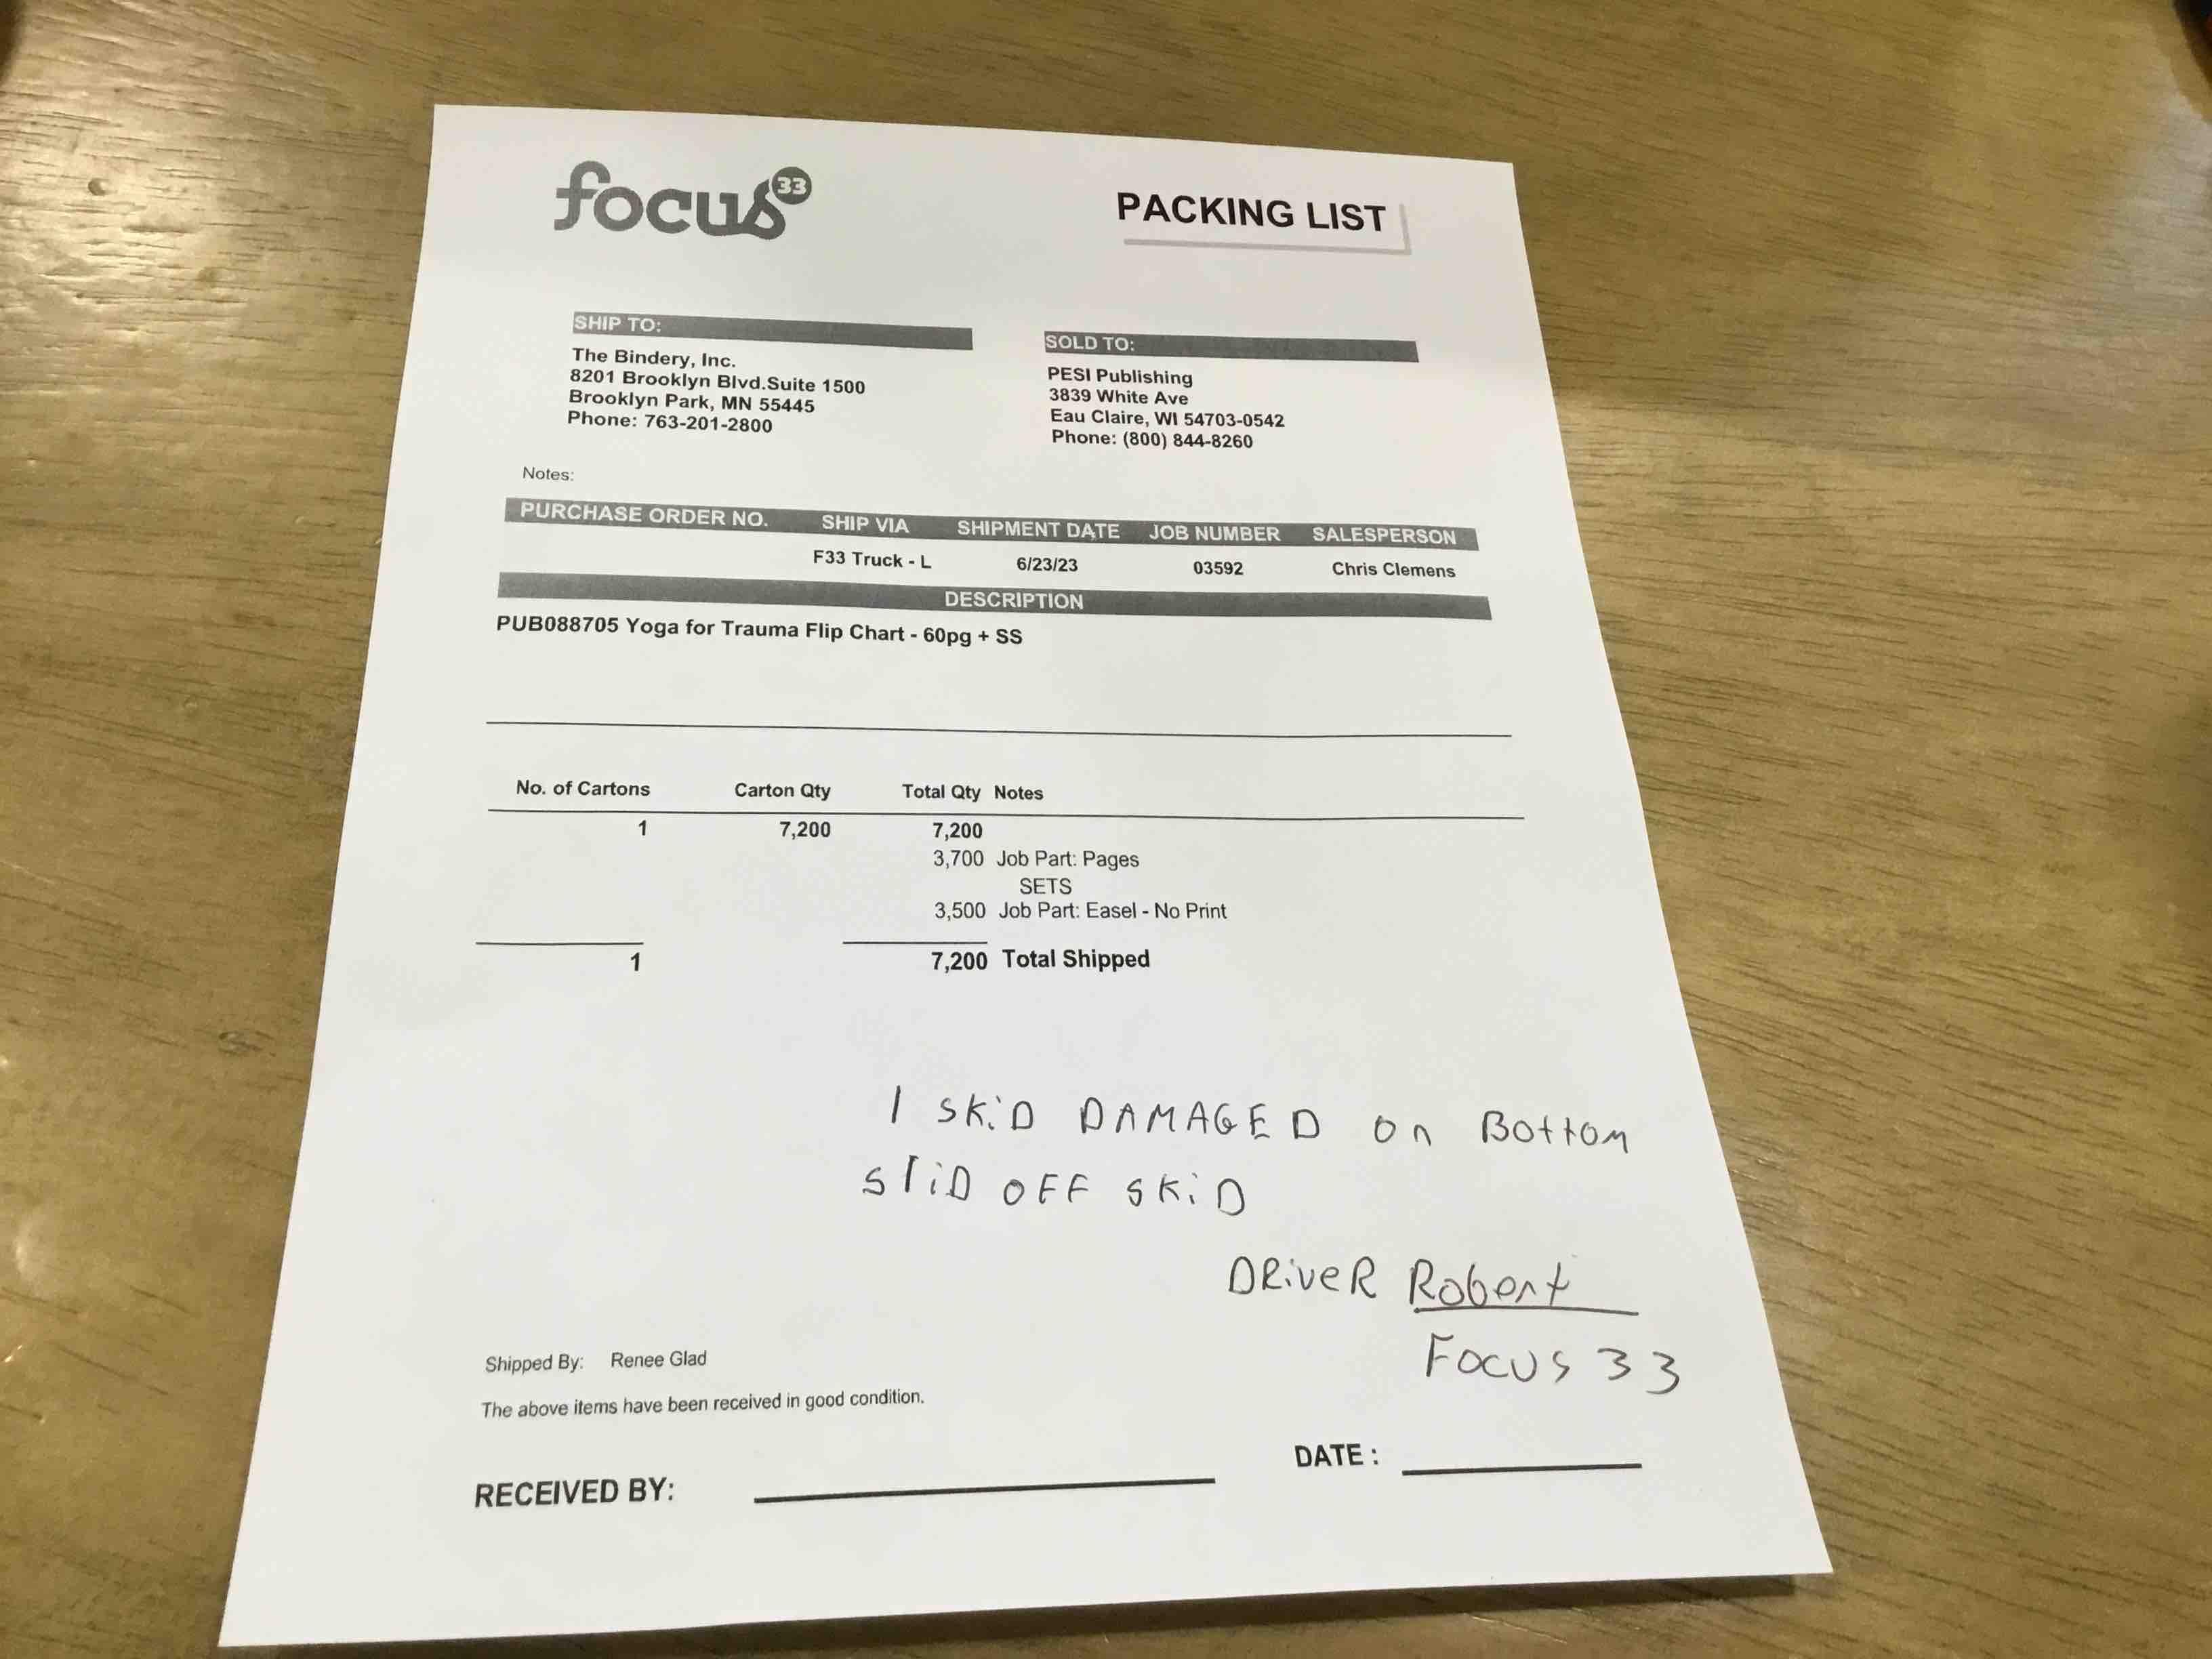 focus33
PACKING LIST
SHIP TO:
The Bindery, Inc.
8201 Brooklyn Blvd.Suite 1500
Brooklyn Park, MN 55445
Phone: 763-201-2800
SOLD TO:
PESI Publishing
3839 White Ave
Eau Claire, WI 54703-0542
Phone: (800) 844-8260
Notes:
PURCHASE ORDER NO. SHIP VIA SHIPMENT DATE JOB NUMBER SALESPERSON
F33 Truck - L 6/23/23 03592 Chris Clemens
DESCRIPTION
PUB088705 Yoga for Trauma Flip Chart - 60pg + SS
No. of Cartons Carton Qty Total Qty Notes
1 7,200 7,200
3,700 Job Part: Pages
SETS
3,500 Job Part: Easel - No Print
1 7,200 Total Shipped
1 SKiD DAMAGED on Bottom
sliD OFF SKiD
DRiveR Robert
Focus 33
Shipped By: Renee Glad
The above items have been received in good condition.
RECEIVED BY: DATE :